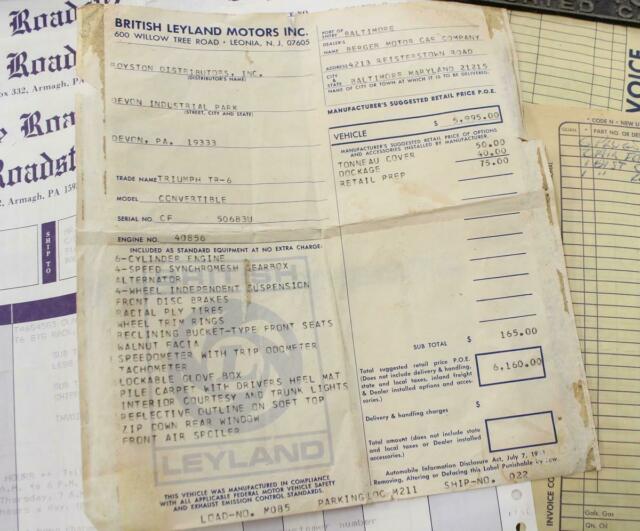 BRITISH LEYLAND MOTORS INC.
600 WILLOW TREE ROAD · LEONIA, N. J. 07605
ROYSTON DISTRIBUTORS, INC.
(DISTRIBUTOR'S NAME)
DEVON INDUSTRIAL PARK
(STREET, CITY AND STATE)
DEVON, PA. 19333
TRADE NAME TRIUMPH TR-6
MODEL CONVERTIBLE
SERIAL NO. CF 50683U
ENGINE NO. 40856
INCLUDED AS STANDARD EQUIPMENT AT NO EXTRA CHARGE:
6-CYLINDER ENGINE
4-SPEED SYNCHROMESH GEARBOX
ALTERNATOR
4-WHEEL INDEPENDENT SUSPENSION
FRONT DISC BRAKES
RACIAL PLY TIRES
WHEEL TRIM RINGS
RECLINING BUCKET-TYPE FRONT SEATS
WALNUT FACIA
SPEEDOMETER WITH TRIP ODOMETER
TACHOMETER
LOCKABLE GLOVE BOX
PILE CARPET WITH DRIVERS HEEL MAT
INTERIOR COURTESY AND TRUNK LIGHTS
REFLECTIVE OUTLINE ON SOFT TOP
ZIP DOWN REAR WINDOW
FRONT AIR SPOILER
LEYLAND
THIS VEHICLE WAS MANUFACTURED IN COMPLIANCE
WITH ALL APPLICABLE FEDERAL MOTOR VEHICLE SAFETY
AND EXHAUST EMISSION CONTROL STANDARDS.
LOAD-NO. M085 PARKINGLOG M211 SHIP-NO. 022
PORT OF ENTRY BALTIMORE
DEALER'S NAME BERGER MOTOR CAR COMPANY
ADDRESS 4213 REISTERSTOWN ROAD
CITY & STATE BALTIMORE MARYLAND 21215
NAME OF CITY OR TOWN AT WHICH IT IS TO BE DELIVERED.
MANUFACTURER'S SUGGESTED RETAIL PRICE P.O.E.
VEHICLE $ 5,995.00
MANUFACTURER'S SUGGESTED RETAIL PRICE OF OPTIONS
AND ACCESSORIES INSTALLED BY MANUFACTURER.
TONNEAU COVER 50.00
DOCKAGE 40.00
RETAIL PREP 75.00
SUB TOTAL $ 165.00
Total suggested retail price P.O.E.
(Does not include delivery & handling,
state and local taxes, inland freight
& Dealer installed options and acces-
sories.)
6,160.00
Delivery & handling charges $
Total amount (does not include state
and local taxes or Dealer installed
accessories.)
Automobile Information Disclosure Act, July 7,
Removing, Altering or Defacing this Label Punishable by
Road
ox 332, Armagh, PA
Roadst
2, Armagh, PA
SHIP TO
INVOICE
* CODE N - NEW
PART NO. OR
INVOICE
Gals. Gas
Qts. Oil
number